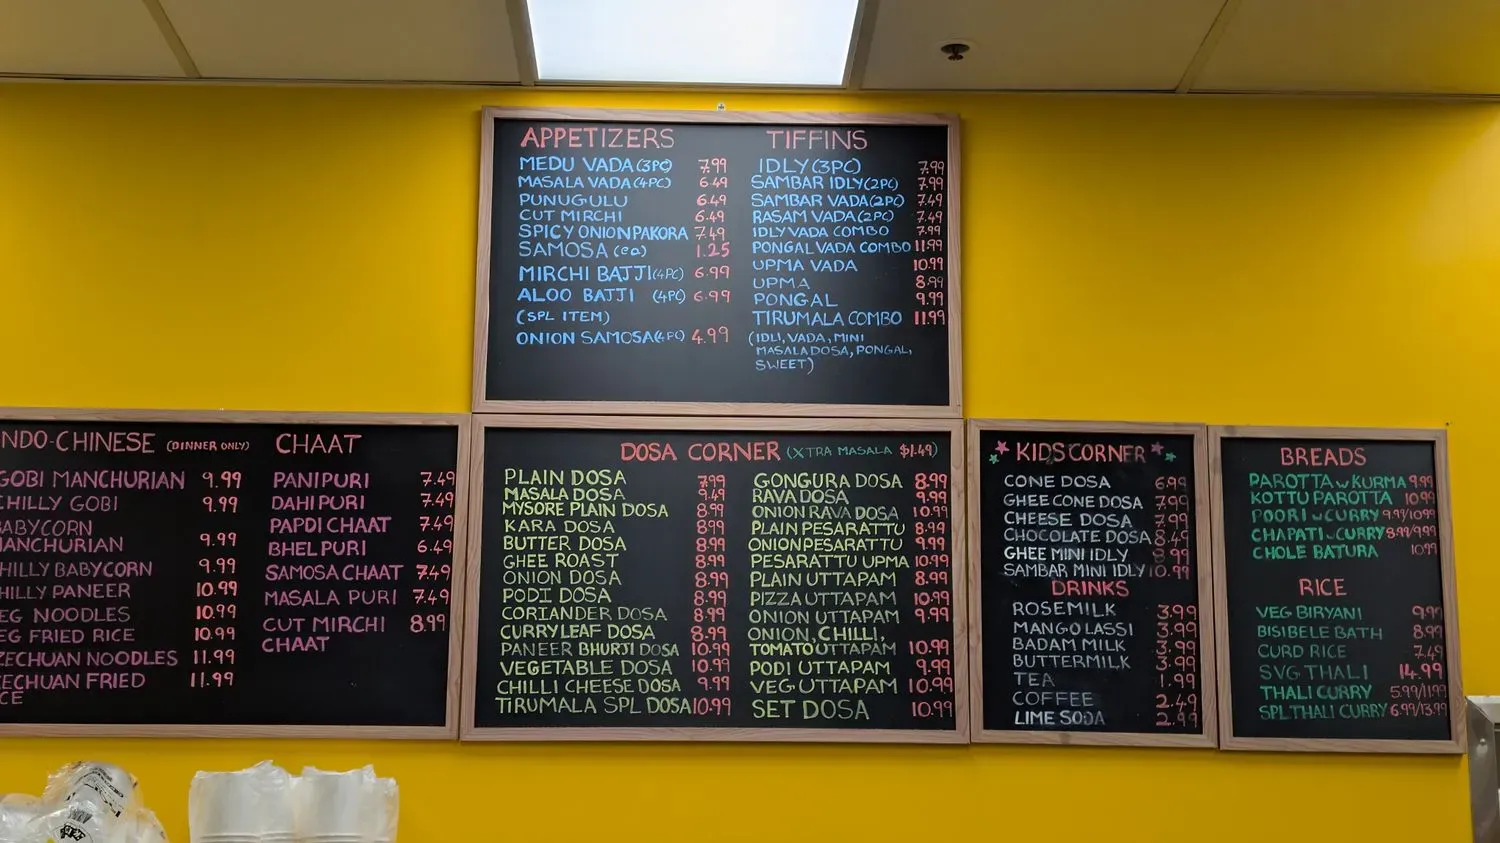 APPETIZERS
MEDU VADA (3PC) 7.99
MASALA VADA (4PC) 6.49
PUNUGULU 6.49
CUT MIRCHI 6.49
SPICY ONION PAKORA 7.49
SAMOSA (ea) 1.25
MIRCHI BAJJI (4PC) 6.99
ALOO BAJJI (4PC) 6.99
(SPL ITEM)
ONION SAMOSA (4PC) 4.99
TIFFINS
IDLY (3PC) 7.99
SAMBAR IDLY (2PC) 7.99
SAMBAR VADA (2PC) 7.49
RASAM VADA (2PC) 7.49
IDLY VADA COMBO 7.99
PONGAL VADA COMBO 11.99
UPMA VADA 10.99
UPMA 8.99
PONGAL 9.99
TIRUMALA COMBO 11.99
(IDLI, VADA, MINI
MASALA DOSA, PONGAL,
SWEET)
NDO-CHINESE (DINNER ONLY)
GOBI MANCHURIAN 9.99
CHILLY GOBI 9.99
BABYCORN
MANCHURIAN 9.99
HILLY BABYCORN 9.99
HILLY PANEER 10.99
EG NOODLES 10.99
EG FRIED RICE 10.99
ZECHUAN NOODLES 11.99
ECHUAN FRIED 11.99
CE
CHAAT
PANIPURI 7.49
DAHIPURI 7.49
PAPDI CHAAT 7.49
BHEL PURI 6.49
SAMOSA CHAAT 7.49
MASALA PURI 7.49
CUT MIRCHI 8.99
CHAAT
DOSA CORNER (XTRA MASALA $1.49)
PLAIN DOSA 7.99
MASALA DOSA 9.49
MYSORE PLAIN DOSA 8.99
KARA DOSA 8.99
BUTTER DOSA 8.99
GHEE ROAST 8.99
ONION DOSA 8.99
PODI DOSA 8.99
CORIANDER DOSA 8.99
CURRYLEAF DOSA 8.99
PANEER BHURJI DOSA 10.99
VEGETABLE DOSA 10.99
CHILLI CHEESE DOSA 9.99
TIRUMALA SPL DOSA 10.99
GONGURA DOSA 8.99
RAVA DOSA 9.99
ONION RAVA DOSA 10.99
PLAIN PESARATTU 8.99
ONION PESARATTU 9.99
PESARATTU UPMA 10.99
PLAIN UTTAPAM 8.99
PIZZA UTTAPAM 10.99
ONION UTTAPAM 9.99
ONION, CHILLI,
TOMATO UTTAPAM 10.99
PODI UTTAPAM 9.99
VEG UTTAPAM 10.99
SET DOSA 10.99
KIDS CORNER
CONE DOSA 6.99
GHEE CONE DOSA 7.99
CHEESE DOSA 7.99
CHOCOLATE DOSA 8.49
GHEE MINI IDLY 8.99
SAMBAR MINI IDLY 10.99
DRINKS
ROSEMILK 3.99
MANGO LASSI 3.99
BADAM MILK 3.99
BUTTERMILK 3.99
TEA 1.99
COFFEE 2.49
LIME SODA 2.99
BREADS
PAROTTA w KURMA 9.99
KOTTU PAROTTA 10.99
POORI w CURRY 9.99/10.99
CHAPATI w CURRY 8.99/9.99
CHOLE BATURA 10.99
RICE
VEG BIRYANI 9.99
BISIBELE BATH 8.99
CURD RICE 7.49
SVG THALI 14.99
THALI CURRY 5.99/11.99
SPL THALI CURRY 6.99/13.99